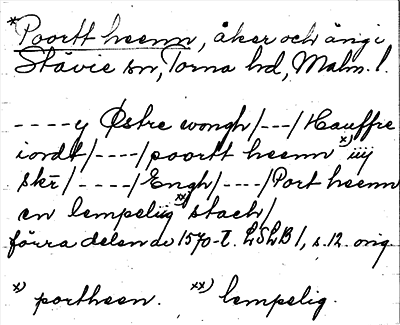 *Poortt heenn, åker och äng i
Stävie sn, Torna hd, Malm. l.
----y Østre wongh/---/Hauffre
iordt/----/poortt heenn x) iiij
skr/----/Engh/----/Port heenn
en lempeliig xx) stach/
förra delen av 1570-t. LSLB 1, s. 12. orig.
x) portheen. xx) lempelig.